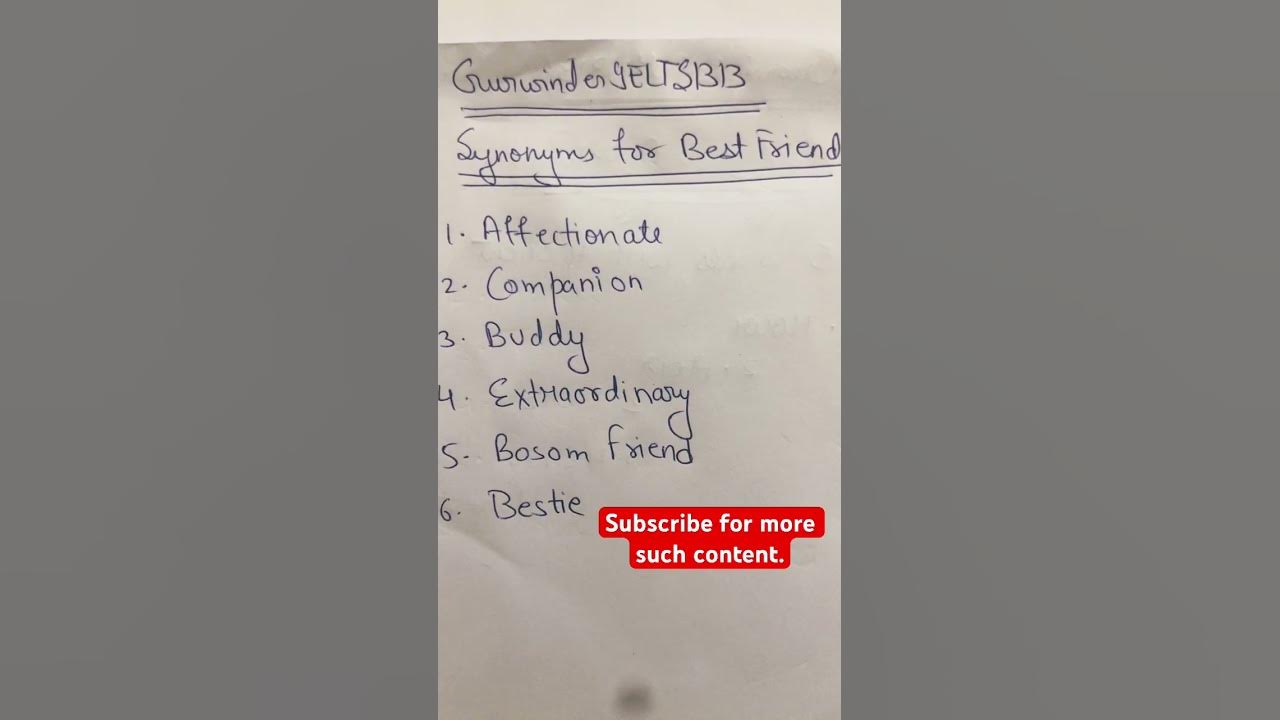 Gurwinder IELTS1313
Synonyms for Best Friend
1. Affectionate
2. Companion
3. Buddy
4. Extraordinary
5. Bosom friend
6. Bestie
Subscribe for more
such content.